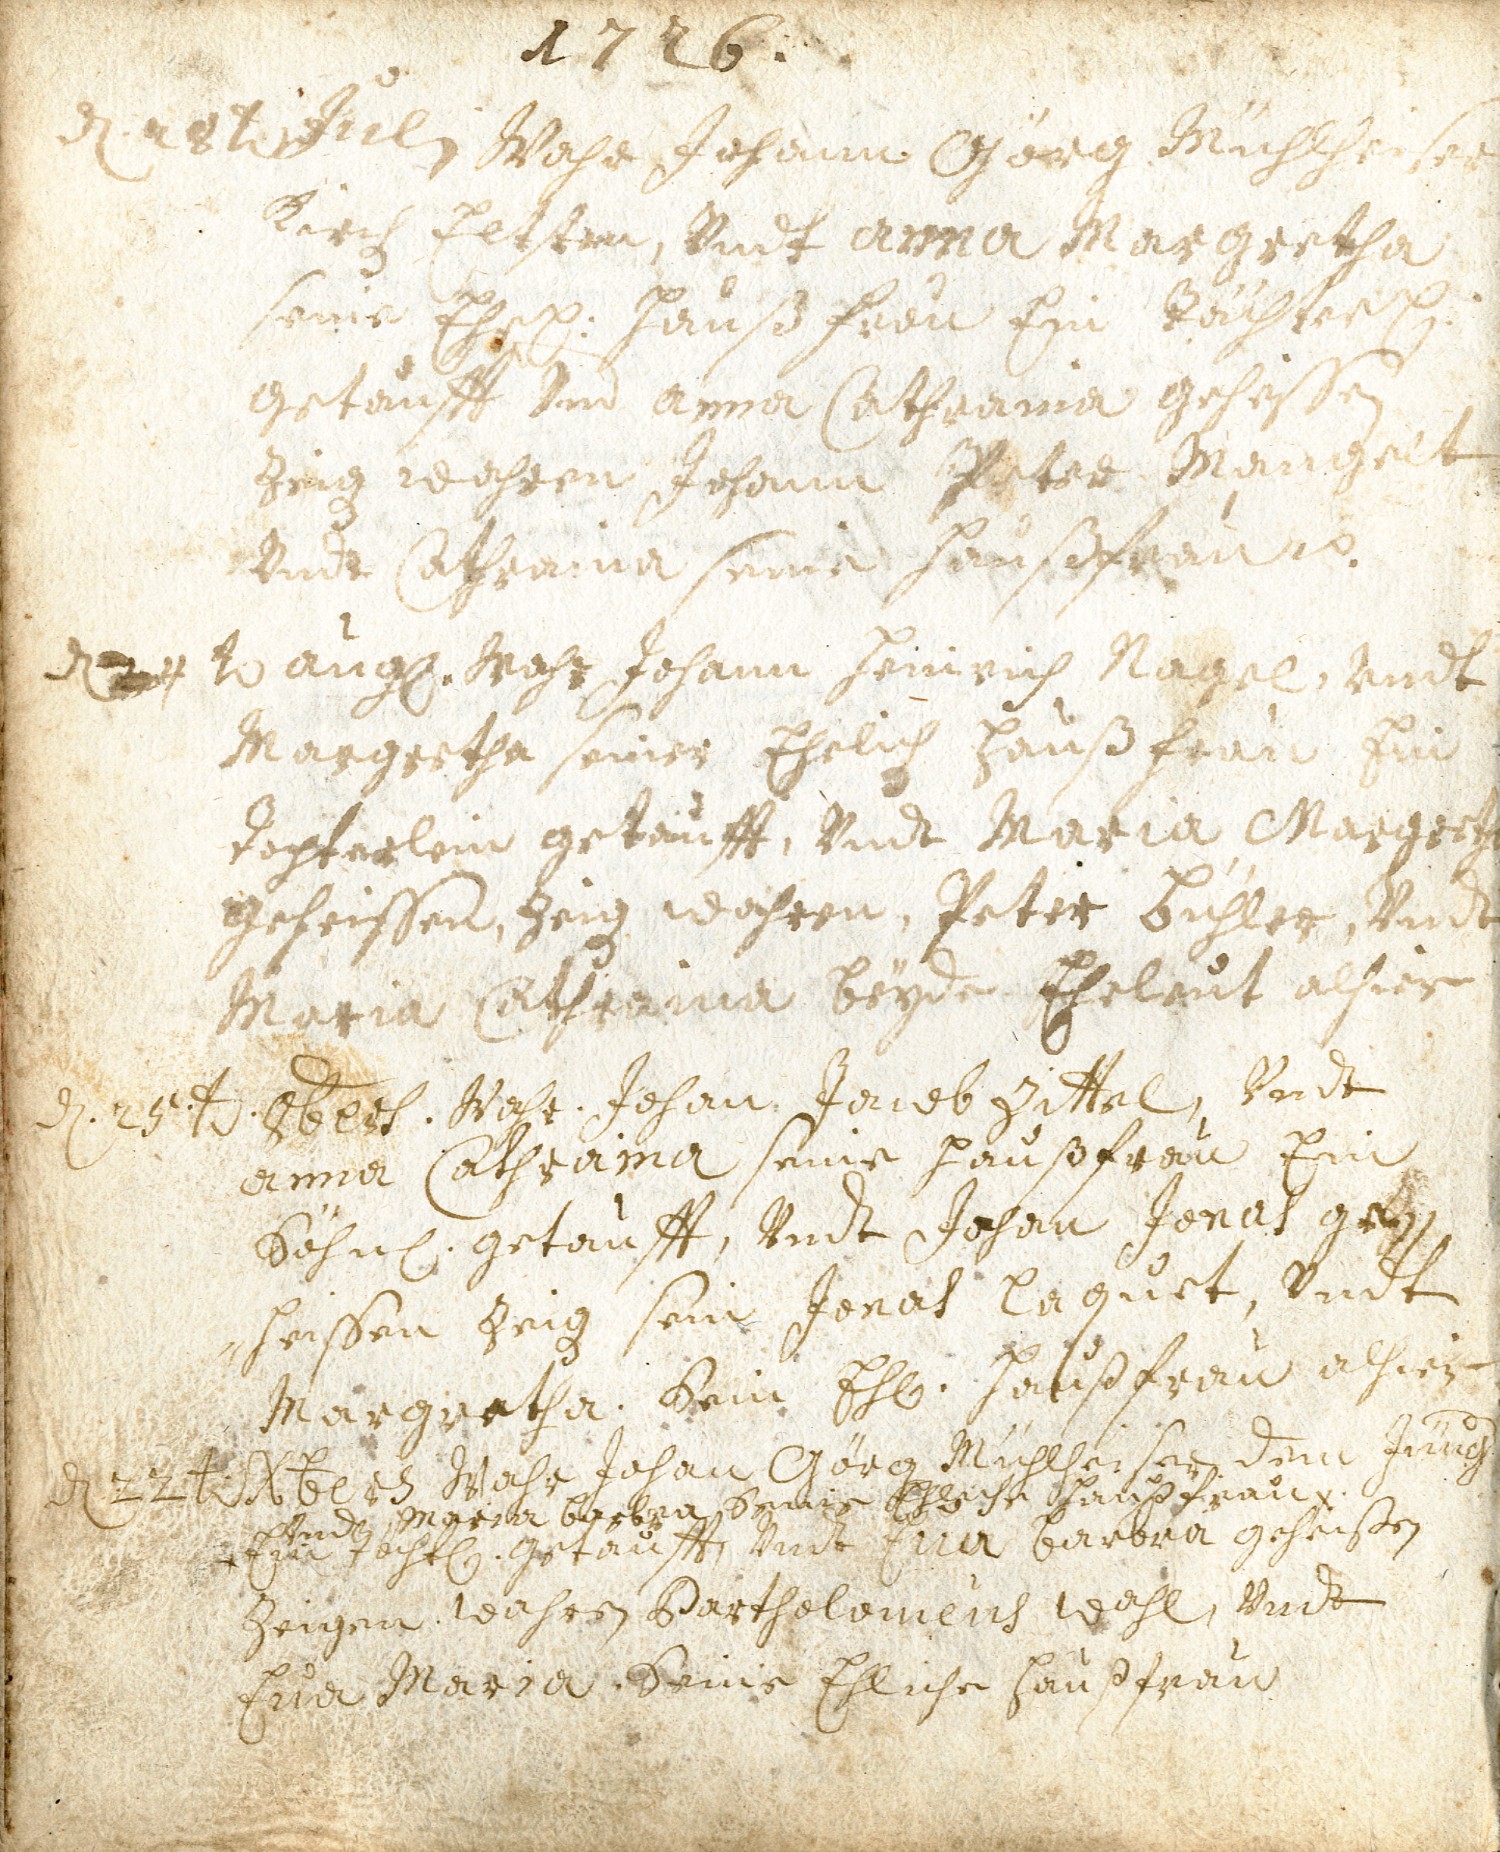 1726.
d. 28t Julÿ Wahr Johann Görg Mühlheiser
Kirch Eltsten, Undt anna Margretha
seine Ehel: Haußfrau Ein Töchterl:
getaufft Und anna Cathraina geheissen
Zeig wahren Johann Peter Mangelt
Undt Cathraina seine Haußfrau
d. t augl. Wahr Johann Heinrich Nagel, Undt
Margretha seiner Ehelich Haußfrau Ein
Tochterlein getaufft, Undt Maria Margreth
geheissen, Zeig wahren, Peter bühler, Undt
Maria Cathraina beÿde Eheleut alhier
d. 25.t. 8bris. Wahr. Johan Jacob Zittel, Undt
anna Cathraina seine Haußfrau Ein
Söhnl. getaufft, Undt Johan Jonas ge//
//heissen Zeig sein Jonas Laquet, Undt
Margretha. Sein Ehl. Haußfrau alhier
d 22t Xbris Wahr Johan Görg Mühlheiser dem Jüng
Undt Maria barbra Seine Ehliche Haußfrau
Ein Tochtl. getaufft, Undt Eva barbra geheißen
Zeigen wahren Bartholomeus Wahl, Undt
Eva Maria Seine Ehliche Haußfrau